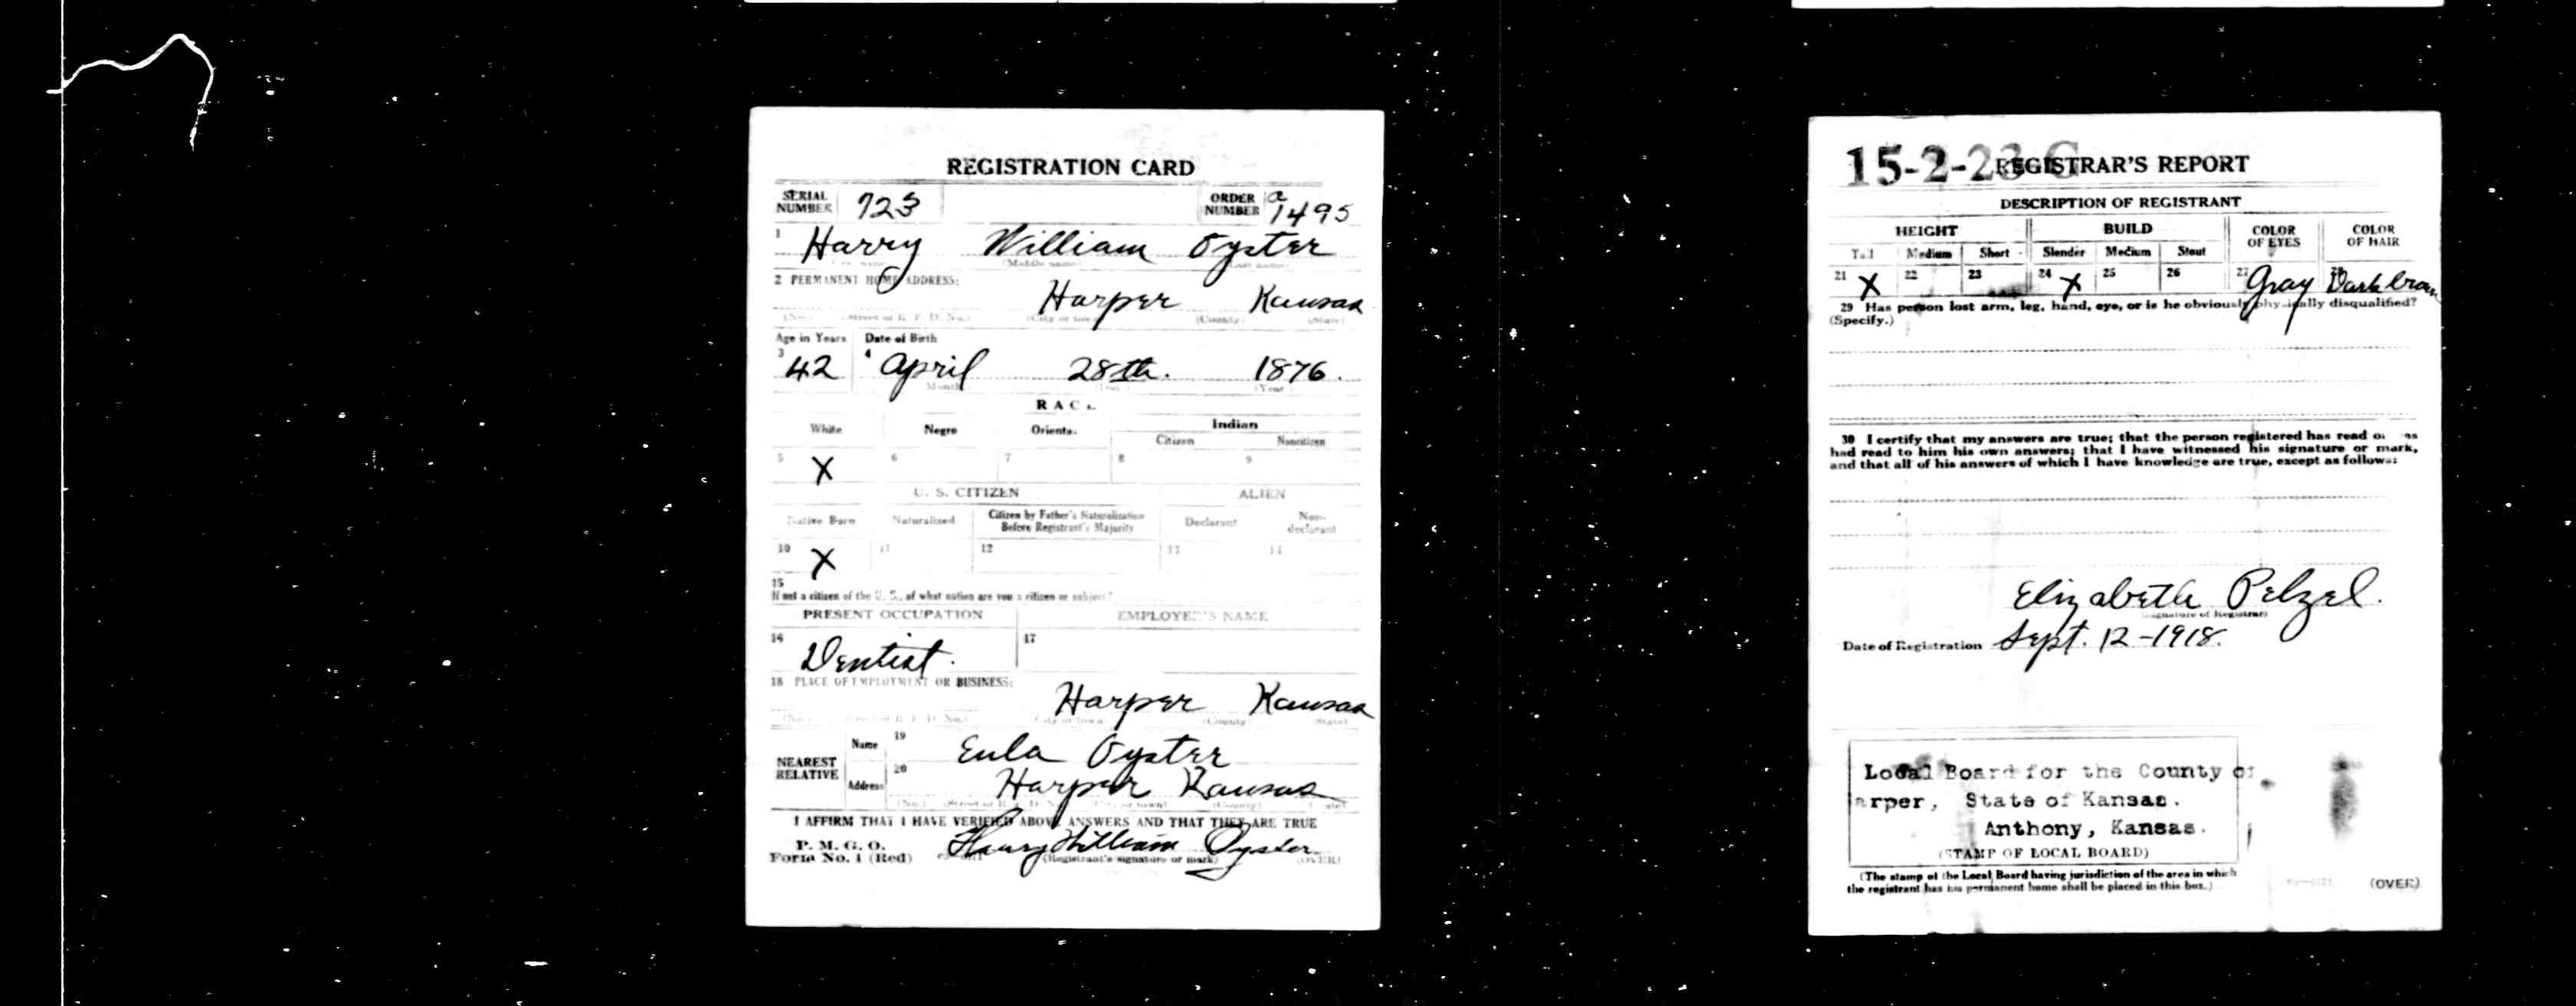 REGISTRATION CARD
SERIAL NUMBER 723 ORDER NUMBER a 1495
1 Harry William Oyster
(Middle name)
2 PERMANENT HOME ADDRESS:
Harper Kansas
(No.) (Street or R. F. D. No.) (City or town) (County) (State)
Age in Years Date of Birth
3 42 4 April 28th. 1876.
Month (Year)
RAC
White Negro Orienta. Indian
Citizen Noncitizen
5 X 6 7 8 9
U. S. CITIZEN ALIEN
Native Born Naturalized Citizen by Father's Naturalization Before Registrant's Majority Declarant Non-declarant
10 X 11 12 13 14
15
If not a citizen of the U. S., of what nation are you a citizen or subject?
PRESENT OCCUPATION EMPLOYER'S NAME
16 Dentist. 17
18 PLACE OF EMPLOYMENT OR BUSINESS:
Harper Kansas
(No.) (Street or R. F. D. No.) (City or town) (County) (State)
NEAREST RELATIVE Name 19 Eula Oyster
Address 20 Harper Kansas
(No.) (Street or R. (County)
I AFFIRM THAT I HAVE VERIFIED ABOVE ANSWERS AND THAT THEY ARE TRUE
P. M. G. O.
Form No. 1 (Red) Harry William Oyster
(Registrant's signature or mark) (OVER)
15-2-23 C
REGISTRAR'S REPORT
DESCRIPTION OF REGISTRANT
HEIGHT BUILD COLOR OF EYES COLOR OF HAIR
Tall Medium Short Slender Medium Stout
21 X 22 23 24 X 25 26 27 Gray Dark brow
29 Has person lost arm, leg, hand, eye, or is he obviously physically disqualified?
(Specify.)
30 I certify that my answers are true; that the person registered has read or has
had read to him his own answers; that I have witnessed his signature or mark,
and that all of his answers of which I have knowledge are true, except as follows:
Elizabeth Pelzel.
(Signature of Registrar)
Date of Registration Sept. 12-1918.
Local Board for the County of
arper, State of Kansas.
Anthony, Kansas.
(STAMP OF LOCAL BOARD)
(The stamp of the Local Board having jurisdiction of the area in which
the registrant has his permanent home shall be placed in this box.)
(OVER)